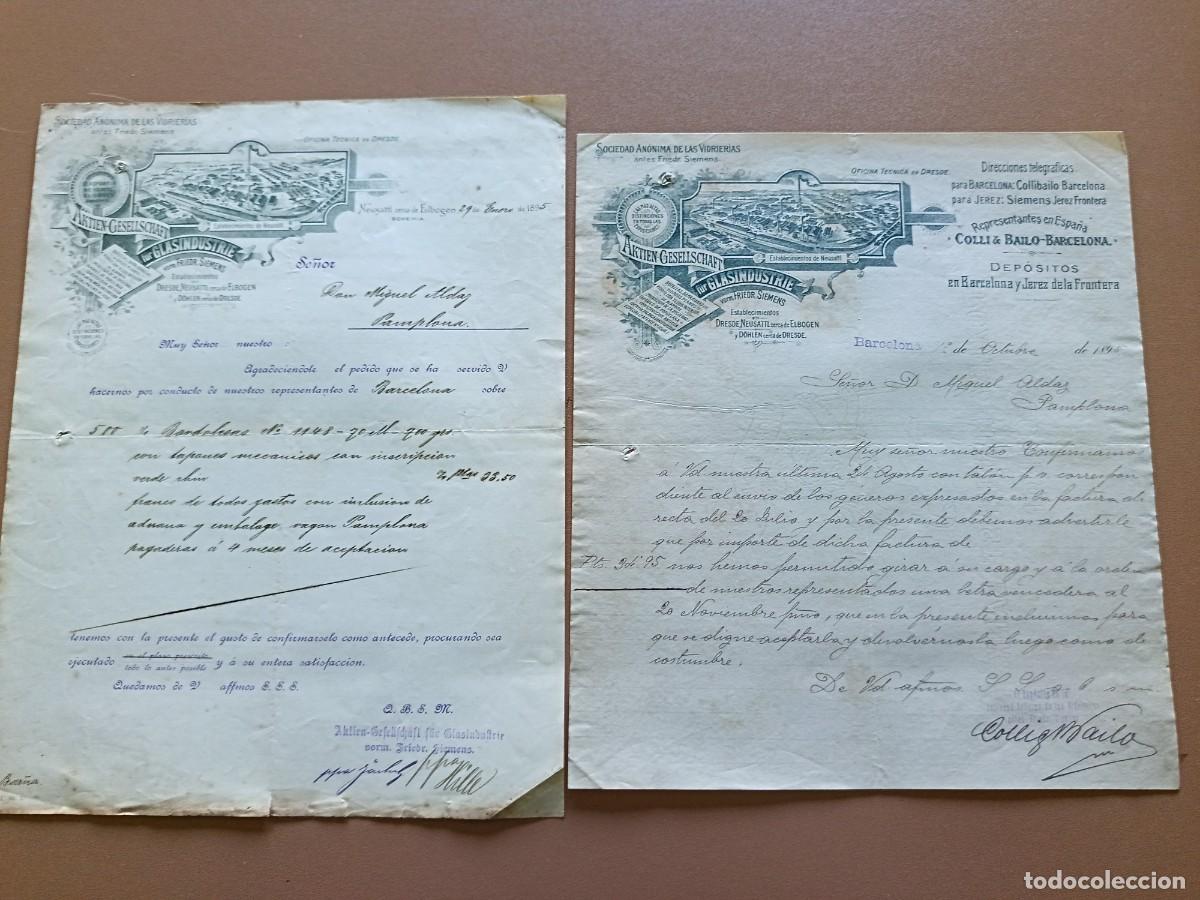 SOCIEDAD ANÓNIMA DE LAS VIDRIERÍAS
antes Friedr. Siemens
OFICINA TECNICA EN DRESDE
AKTIEN-GESELLSCHAFT
Establecimientos de Neusattl
für GLASINDUSTRIE
VORM. FRIEDR. SIEMENS
Establecimientos
en
DRESDE, NEUSATTL cerca de ELBOGEN
y DÖHLEN cerca de DRESDE.
Neusattl cerca de Elbogen 29 de Enero de 1895
BOHEMIA
Señor
Don Miguel Aldaz
Pamplona.
Muy Señor nuestro :
Agradeciendole el pedido que se ha servido V
hacernos por conducto de nuestros representantes de Barcelona sobre
500 Bordolesas No 1148 - 70 - 700 grs.
con tapones mecanicos con inscripcion
verde % 33.50
franco de todos gastos con inclusion de
aduana y embalage, vagon Pamplona
pagaderas á 4 meses de aceptacion
tenemos con la presente el gusto de confirmarselo como antecede, procurando sea
ejecutado en el plazo prescrito
todo lo antes posible y á su entera satisfaccion.
Quedamos de V affmos S.S.S.
Q. B. S. M.
Aktien-Gesellschaft für Glasindustrie
vorm. Friedr. Siemens.
ppa ppa Hille
Barña
SOCIEDAD ANÓNIMA DE LAS VIDRIERÍAS
antes Friedr. Siemens.
OFICINA TECNICA EN DRESDE.
LAS MAS ALTAS
DISTINCIONES
EN TODAS LAS
EXPOSICIONES
AKTIEN-GESELLSCHAFT
Establecimientos de Neusattl
für GLASINDUSTRIE
VORM. FRIEDR. SIEMENS
Establecimientos
en
DRESDE, NEUSATTL cerca de ELBOGEN
y DÖHLEN cerca de DRESDE.
Direcciones telegraficas
para BARCELONA: Collibailo Barcelona
para JEREZ: Siemens Jerez Frontera
Representantes en España
COLLI & BAILO-BARCELONA.
DEPÓSITOS
en Barcelona y Jerez de la Frontera
Barcelona 1º de Octubre de 1895
Señor D. Miguel Aldaz
Pamplona
Muy señor nuestro Confirmamos
á Vd nuestra última 24 Agosto con talón f.c. correspon
diente al envio de los géneros expresados en la factura di
recta del 20 Julio y por la presente debemos advertirle
que por importe de dicha factura de
Pts. 341.95 nos hemos permitido girar a su cargo y á la orden
de nuestros representados una letra vencedera al
20 Noviembre pmo, que en la presente incluimos para
que se digne aceptarla y devolvernosla luego como de
costumbre.
De Vd afmos S S
Colli & Bailo
todocoleccion